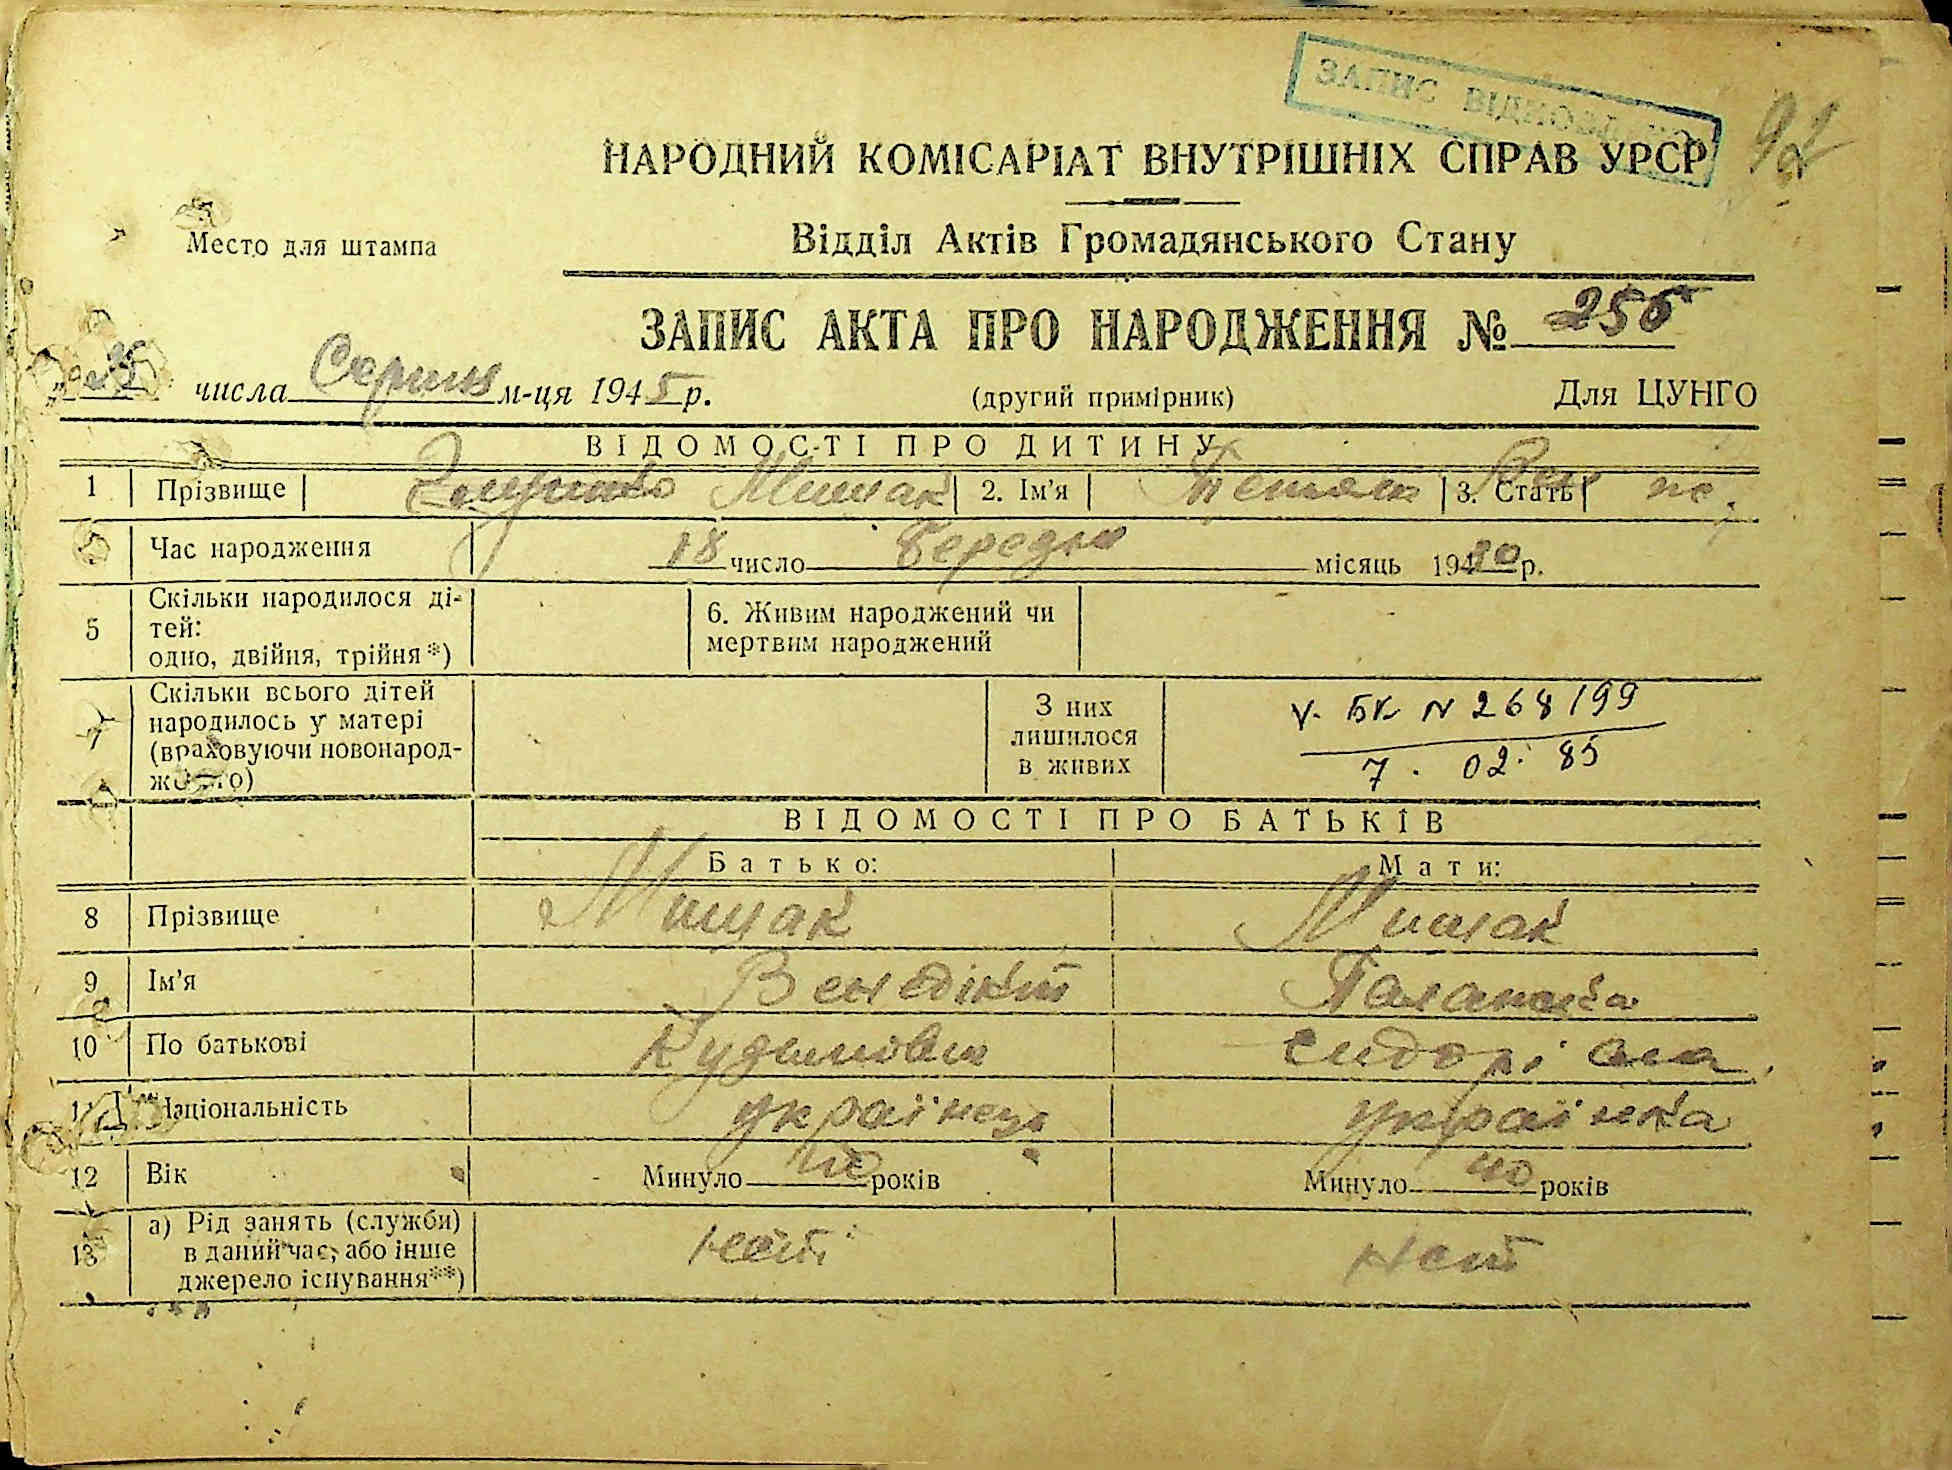 ЗАПИС ВІДНОВЛЕНО
92
НАРОДНИЙ КОМІСАРІАТ ВНУТРІШНІХ СПРАВ УРСР
Место для штампа
Відділ Актів Громадянського Стану
ЗАПИС АКТА ПРО НАРОДЖЕННЯ № 256
числа Серпня м-ця 1945 р. (другий примірник) Для ЦУНГО
ВІДОМОСТІ ПРО ДИТИНУ
1 Прізвище Мишак 2. Ім'я 3. Стать
Час народження 18 число Березня місяць 194 р.
5 Скільки народилося ді-
тей:
одно, двійня, трійня*)
6. Живим народжений чи
мертвим народжений
7 Скільки всього дітей
народилось у матері
(враховуючи новонарод-
женого)
З них
лишилося
в живих
V- БК N 268199
7. 02. 85
ВІДОМОСТІ ПРО БАТЬКІВ
Батько: Мати:
8 Прізвище Мишак Мишак
9 Ім'я Венедікт Палажка
10 По батькові Сидорівна
11 Національність українець українка
12 Вік Минуло років Минуло 40 років
13 а) Рід занять (служби)
в даний час, або інше
джерело існування**)
нет